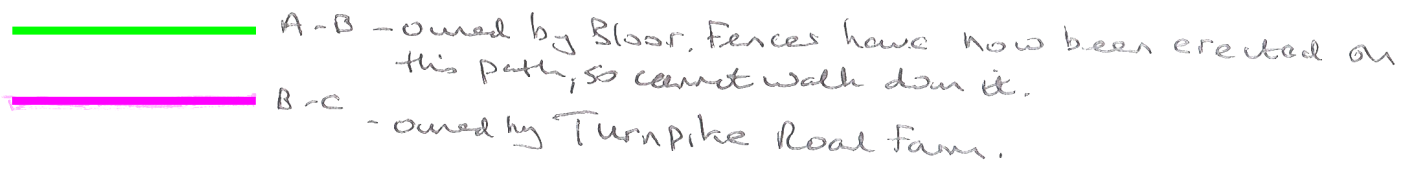 A-B - owned by Bloor. Fences have now been erected on
this path, so cannot walk down it.
B-C
- owned by Turnpike Road Farm.